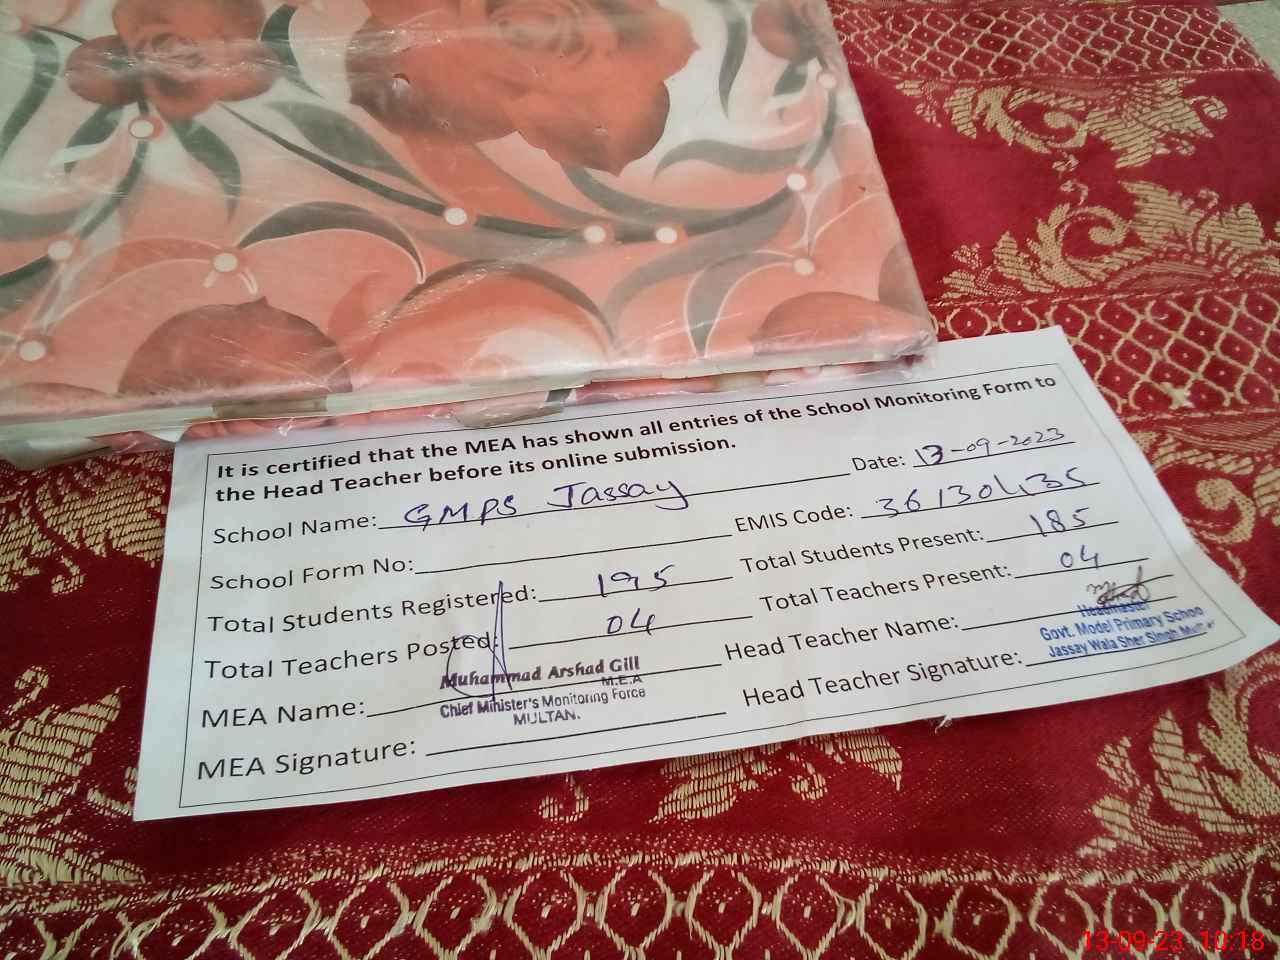 It is certified that the MEA has shown all entries of the School Monitoring Form to
the Head Teacher before its online submission.
Date: 13-09-2023
School Name: GMPS Jassay
EMIS Code: 36130435
School Form No:
Total Students Present: 185
Total Students Registered: 195
Total Teachers Present: 04
Total Teachers Posted: 04
Head Teacher Name:
Headmaster
Govt. Model Primary Schoo
Jassay Wala Sher Singh
MEA Name:
Muhammad Arshad Gill
M.E.A
Chief Minister's Monitoring Force
MULTAN.
Head Teacher Signature:
MEA Signature:
13-09-23 10:18